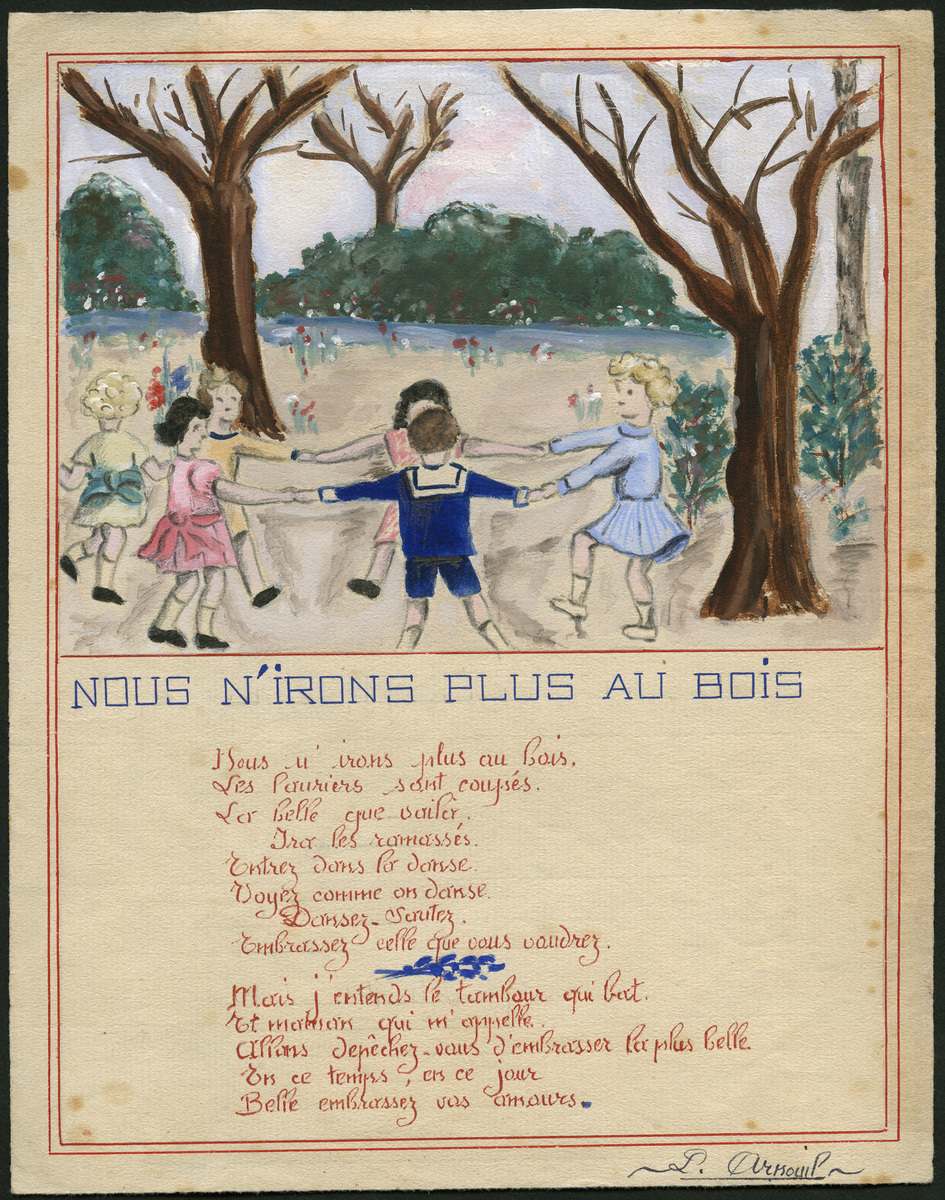 NOUS N'IRONS PLUS AU BOIS
Nous n'irons plus au bois,
Les lauriers sont coupés.
La belle que voilà.
Ira les ramassés.
Entrez dans la danse.
Voyez comme on danse.
Dansez - Sautez.
Embrassez celle que vous voudrez.
Mais j'entends le tambour qui bat.
Et maman qui m'appelle.
Allons depêchez-vous d'embrasser la plus belle.
En ce temps, en ce jour
Belle embrassez vos amours.
~ L. Arnouil ~